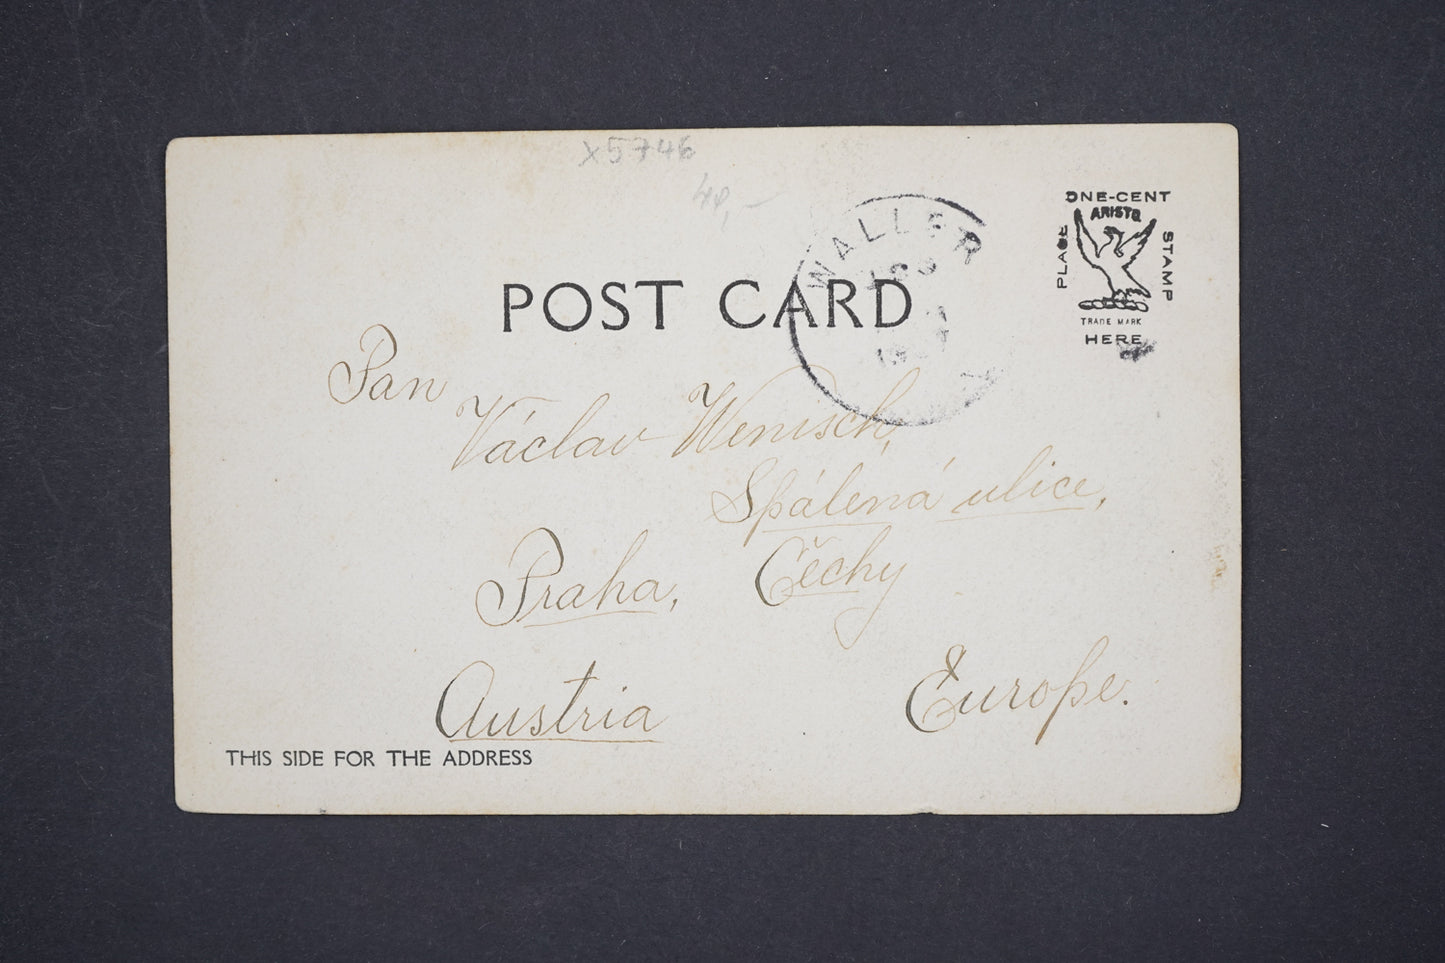 x5746
WALLER
ONE-CENT
ARISTO
PLACE
STAMP
TRADE MARK
HERE
POST CARD
Pan
Václav Wenisch,
Spálená ulice,
Praha, Čechy
Austria Europe.
THIS SIDE FOR THE ADDRESS